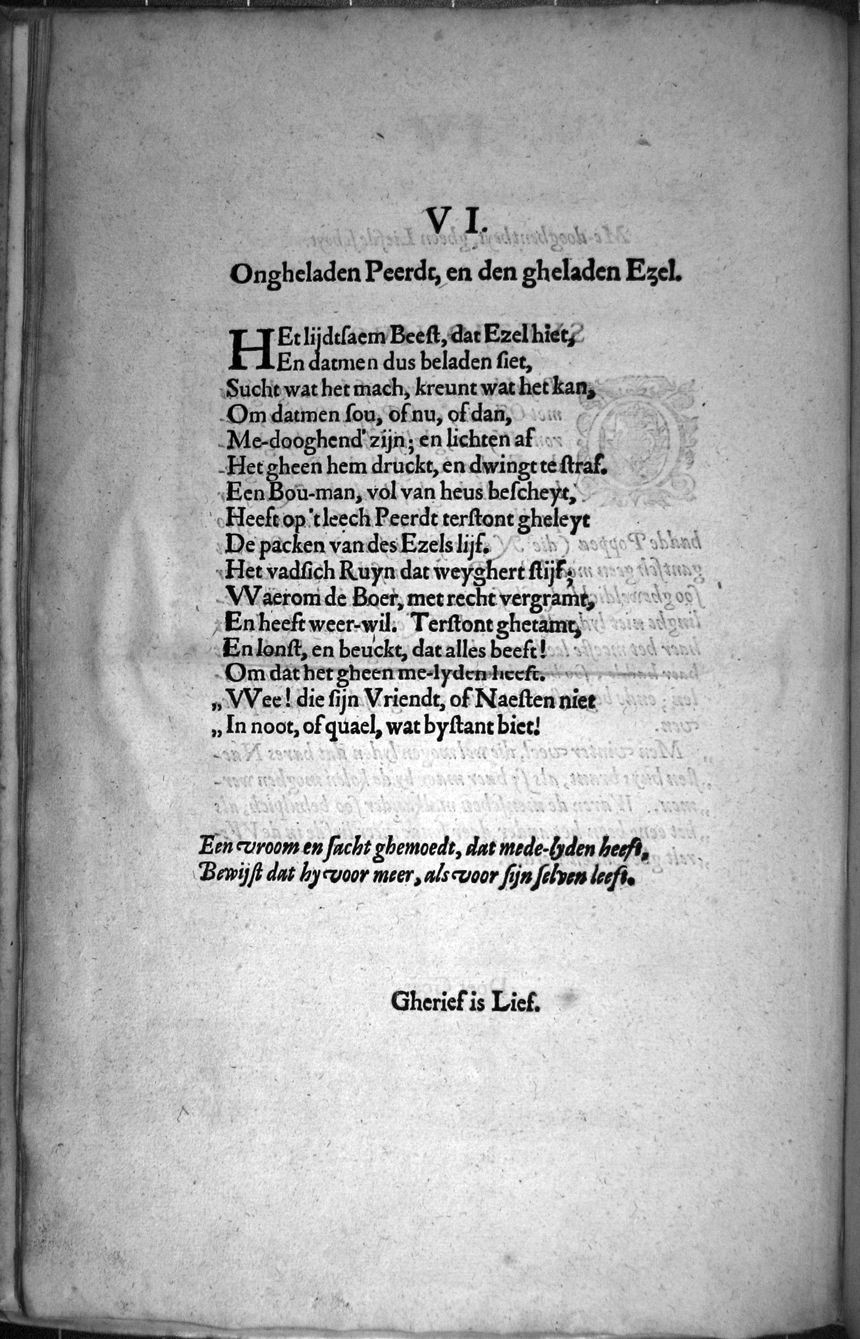 VI.
Ongheladen Peerdt, en den gheladen Ezel.
HEt lijdtsaem Beest, dat Ezel hiet,
En datmen dus beladen siet,
Sucht wat het mach, kreunt wat het kan,
Om datmen sou, of nu, of dan,
Me-dooghend' zijn; en lichten af
Het gheen hem druckt, en dwingt te straf.
Een Bou-man, vol van heus bescheyt,
Heeft op 't leech Peerdt terstont gheleyt
De packen van des Ezels lijf.
Het vadsich Ruyn dat weyghert stijf;
VVaerom de Boer, met recht vergramt,
En heeft weer-wil. Terstont ghetamt,
En lonst, en beuckt, dat alles beeft!
Om dat het gheen me-lyden heeft.
„ VVee! die sijn Vriendt, of Naesten niet
„ In noot, of quael, wat bystant biet!
Een vroom en sacht ghemoedt, dat mede-lyden heeft,
Bewijst dat hy voor meer, als voor sijn selven leeft.
Gherief is Lief.